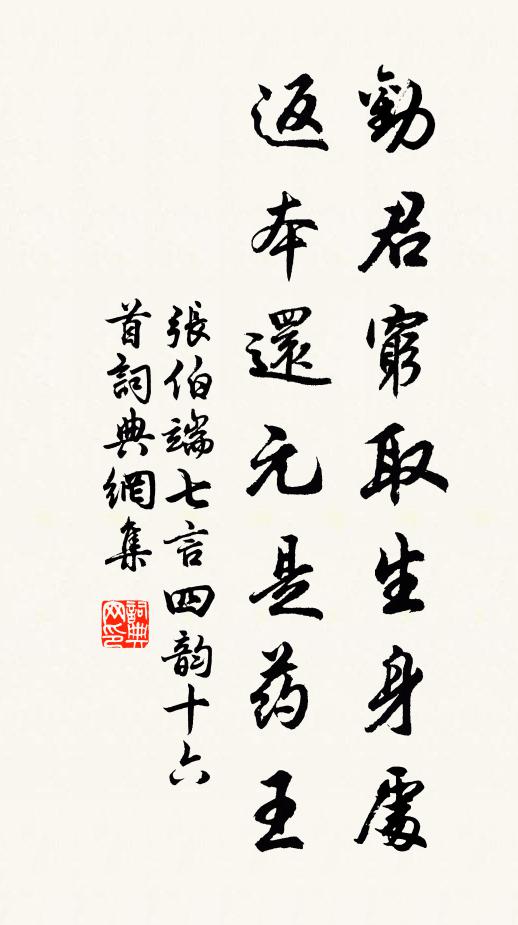 勸君窮取生身處
返本還元是药王
張伯端七言四韵十六
首詞典網集
詞典
网印